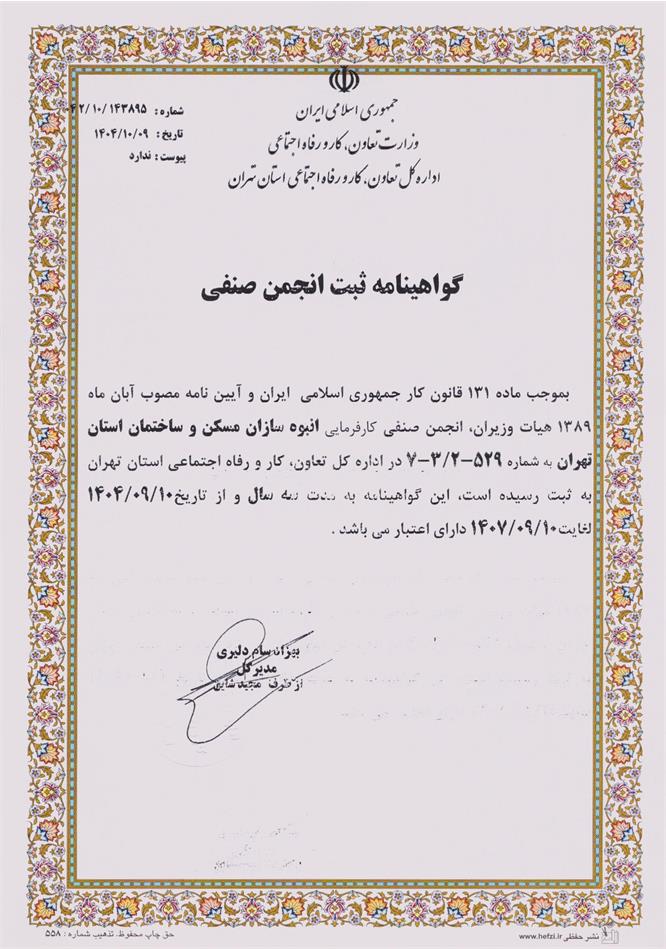 جمهوری اسلامی ایران
وزارت تعاون، کار و رفاه اجتماعی
اداره کل تعاون، کار و رفاه اجتماعی استان تهران
شماره : ۴۲/۱۰/۱۴۳۸۹۵
تاریخ : ۱۴۰۴/۱۰/۰۹
پیوست : ندارد
گواهینامه ثبت انجمن صنفی
بموجب ماده ۱۳۱ قانون کار جمهوری اسلامی ایران و آیین نامه مصوب آبان ماه
۱۳۸۹ هیات وزیران، انجمن صنفی کارفرمایی انبوه سازان مسکن و ساختمان استان
تهران به شماره ۵۲۹-۳/۲-۷ در اداره کل تعاون، کار و رفاه اجتماعی استان تهران
به ثبت رسیده است، این گواهینامه به مدت سه سال و از تاریخ۱۴۰۴/۰۹/۱۰
لغایت۱۴۰۷/۰۹/۱۰ دارای اعتبار می باشد .
سام دلیری
مدیرکل
از طرف مجید
نشر حفظی www.hefzi.ir
حق چاپ محفوظ. تذهیب شماره : ۵۵۸